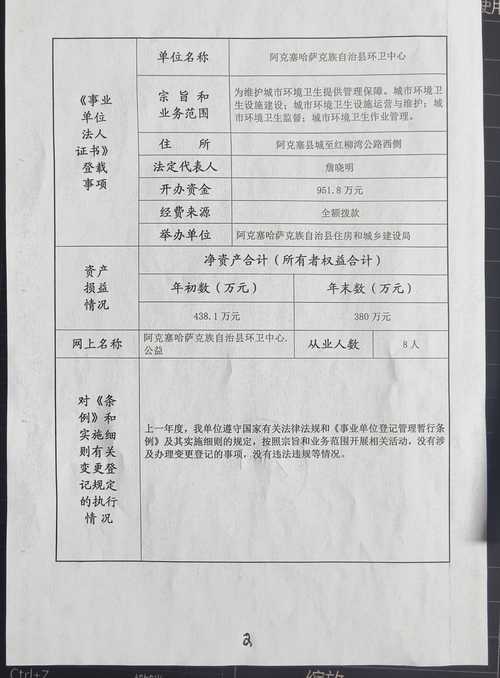 单位名称
阿克塞哈萨克族自治县环卫中心
《事业
单位
法人
证书》
登载
事项
宗旨和
业务范围
为维护城市环境卫生提供管理保障。城市环境卫
生设施建设；城市环境卫生设施运营与维护；城
市环境卫生监督；城市环境卫生作业管理。
住所
阿克塞县城至红柳湾公路西侧
法定代表人
詹晓明
开办资金
951.8万元
经费来源
全额拨款
举办单位
阿克塞哈萨克族自治县住房和城乡建设局
资产
损益
情况
净资产合计（所有者权益合计）
年初数（万元）
年末数（万元）
438.1万元
380万元
网上名称
阿克塞哈萨克族自治县环卫中心.
公益
从业人数
8人
对《条
例》和
实施细
则有关
变更登
记规定
的执行
情况
上一年度，我单位遵守国家有关法律法规和《事业单位登记管理暂行条
例》及其实施细则的规定，按照宗旨和业务范围开展相关活动，没有涉
及办理变更登记的事项，没有违法违规等情况。
2
Ctrl+Z
缩放